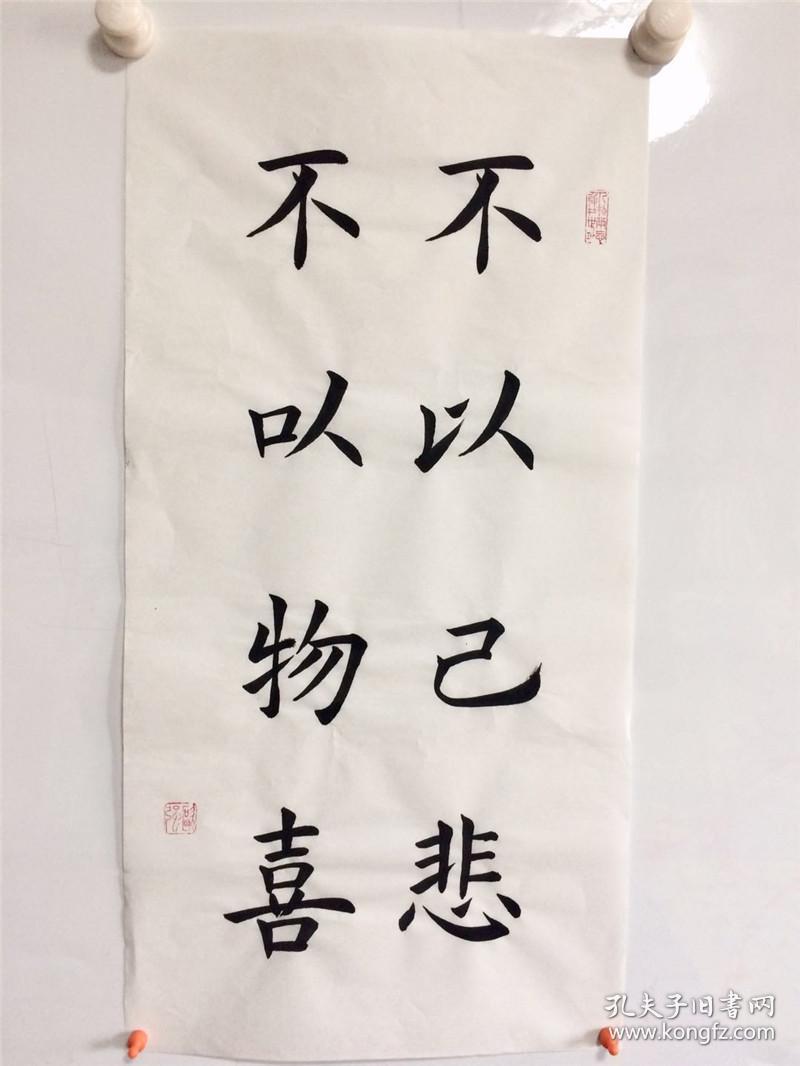 不以己悲
不以物喜
孔夫子旧書网
www.kongfz.com